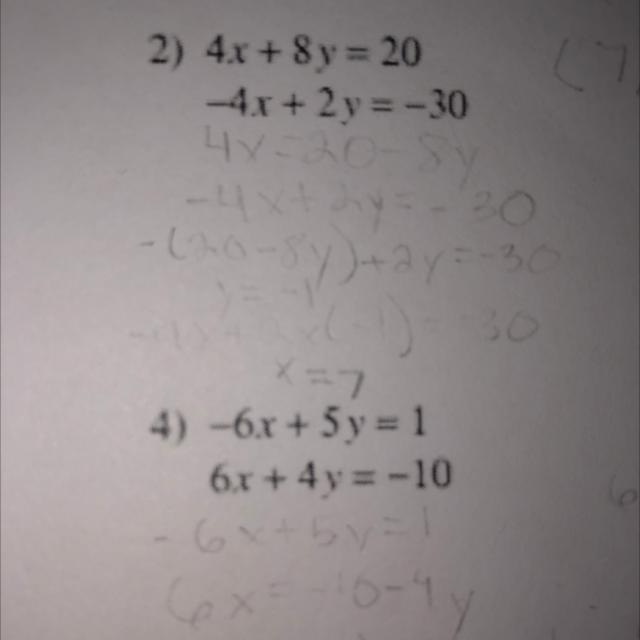 2) 4x + 8y = 20
(7,
-4x + 2y = -30
4x = 20 - 8y
-4x + 2y = -30
-(20-8y)+2y=-30
y = -1
-4x + 2x(-1) = -30
x = 7
4) -6x + 5y = 1
6x + 4y = -10
6
-6x+5y=1
6x = -10-4y